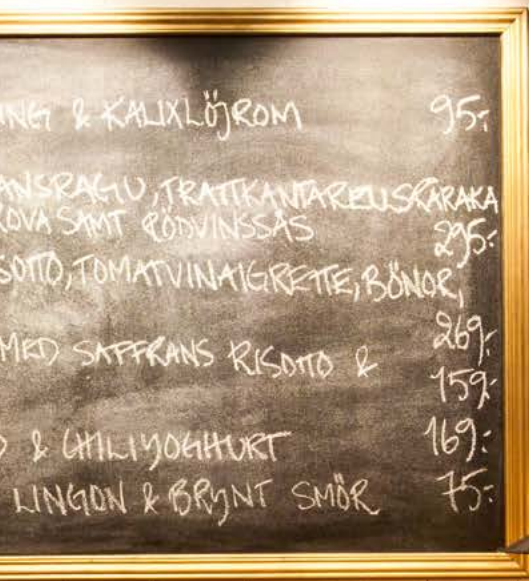 ING & KALIXLÖJROM 95:-
ANSRAGU, TRATTKANTARELLSKARAKA
KOVA SAMT RÖDVINSSÅS 295:-
SOTTO, TOMATVINAIGRETTE, BÖNOR,
269:-
MED SAFFRANS RISOTTO &
159:-
D & CHILIYOGHURT 169:-
LINGON & BRYNT SMÖR 75:-